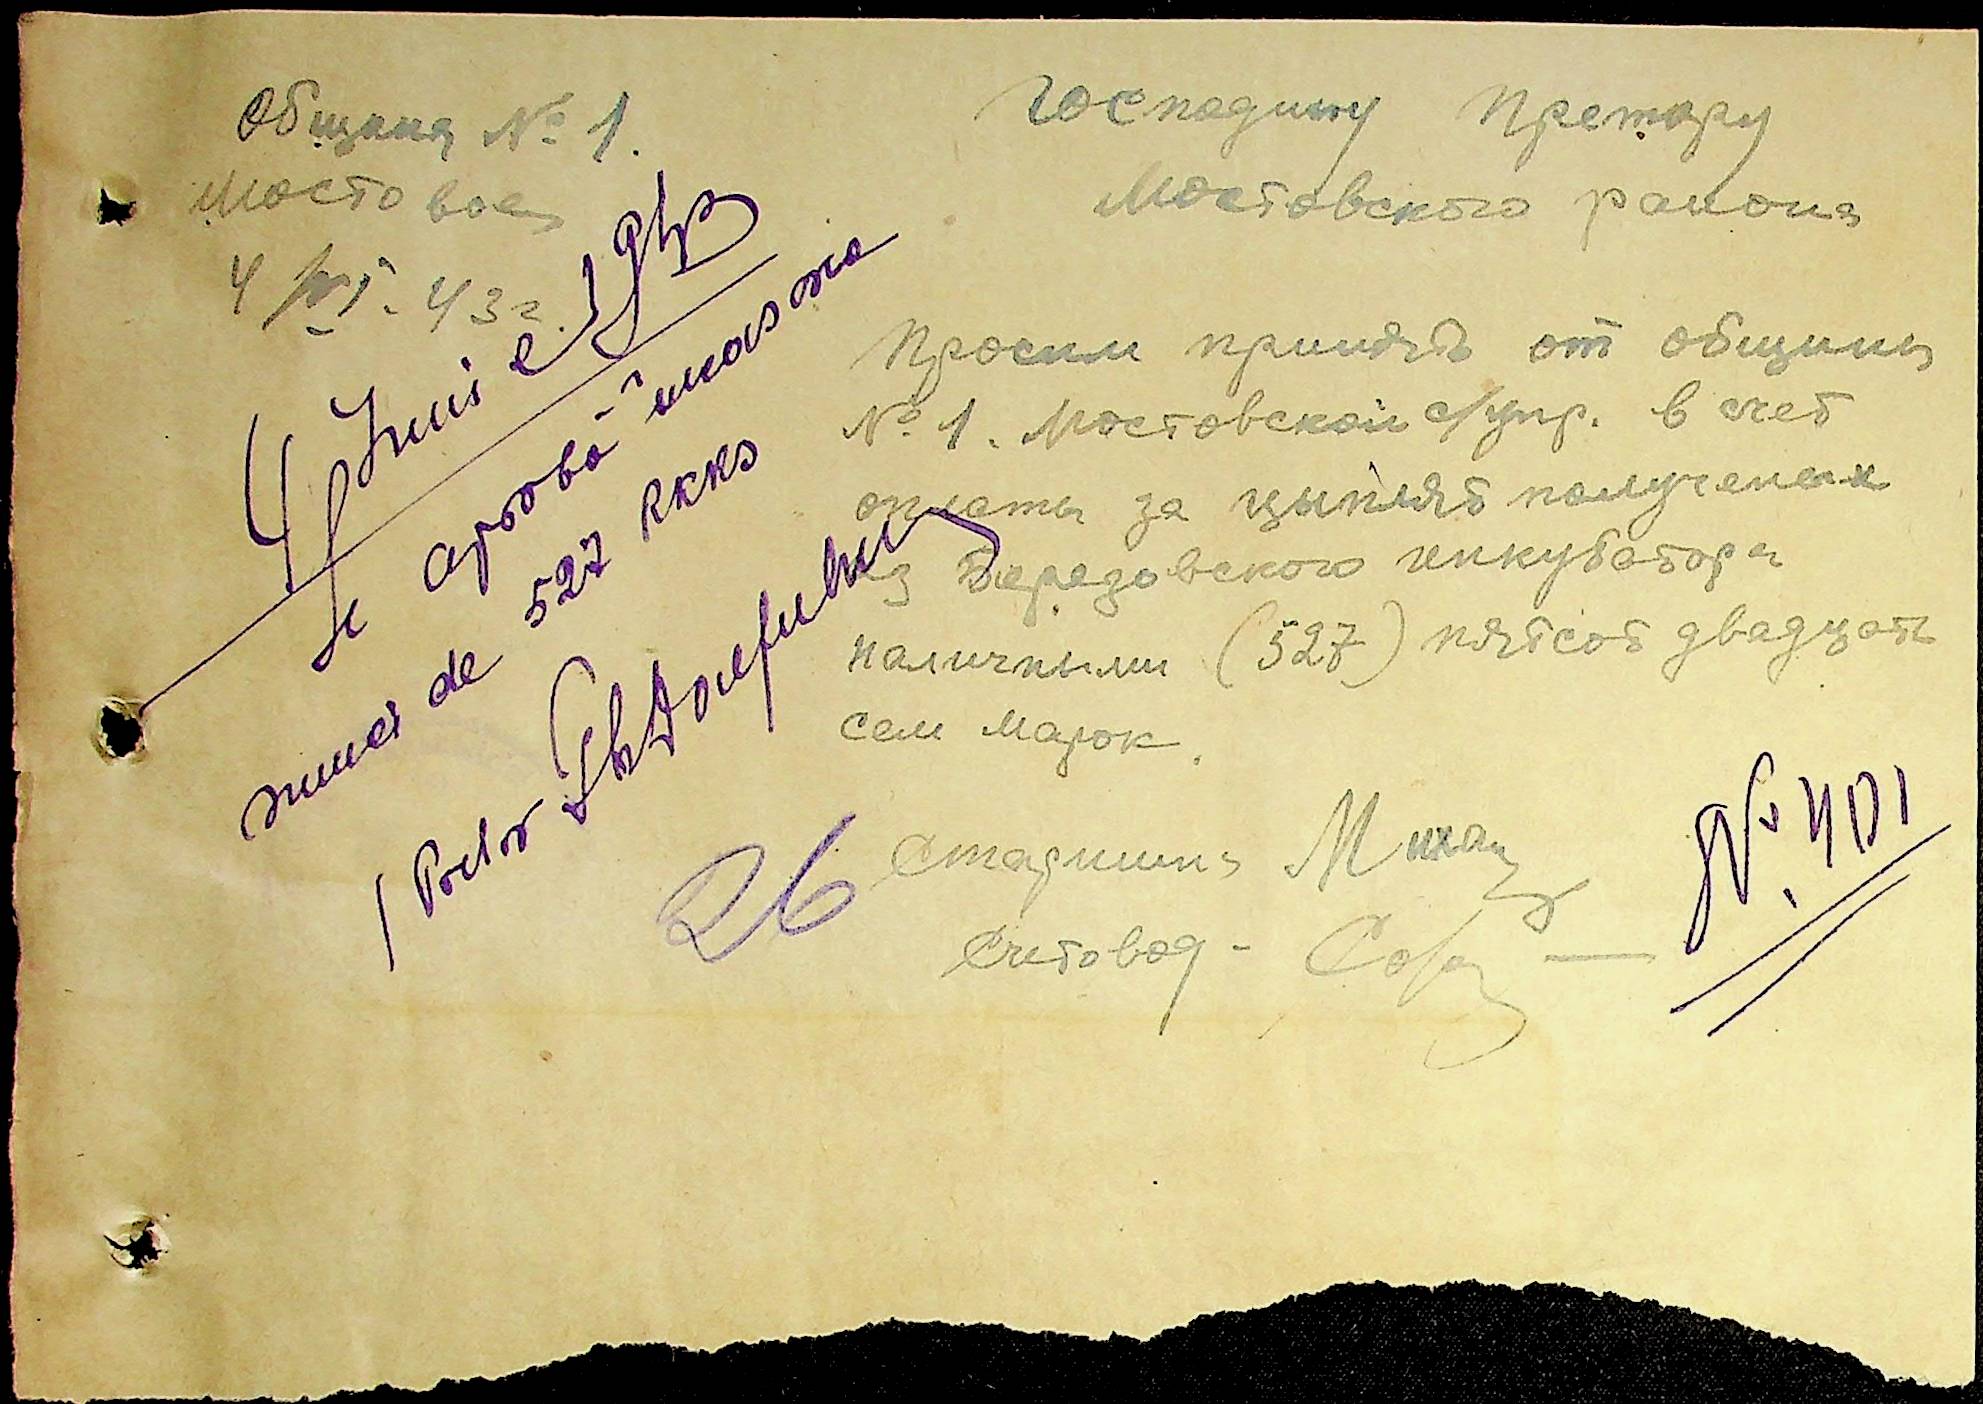 Община № 1.
Мостовое
4/VI. 43 г.
Господину Претору
Мостовского района
Просим принять от общины
№ 1. Мостовской с/упр. в счет
оплаты за цыплят полученых
из Березовского инкубатора
наличными (527) пятсот двадцать
сем марок.
Старшина
Счетовод -
4 Iunie 1943
Se aprobă încasarea
sumei de 527 RKKS
Pretor
26
№ 401